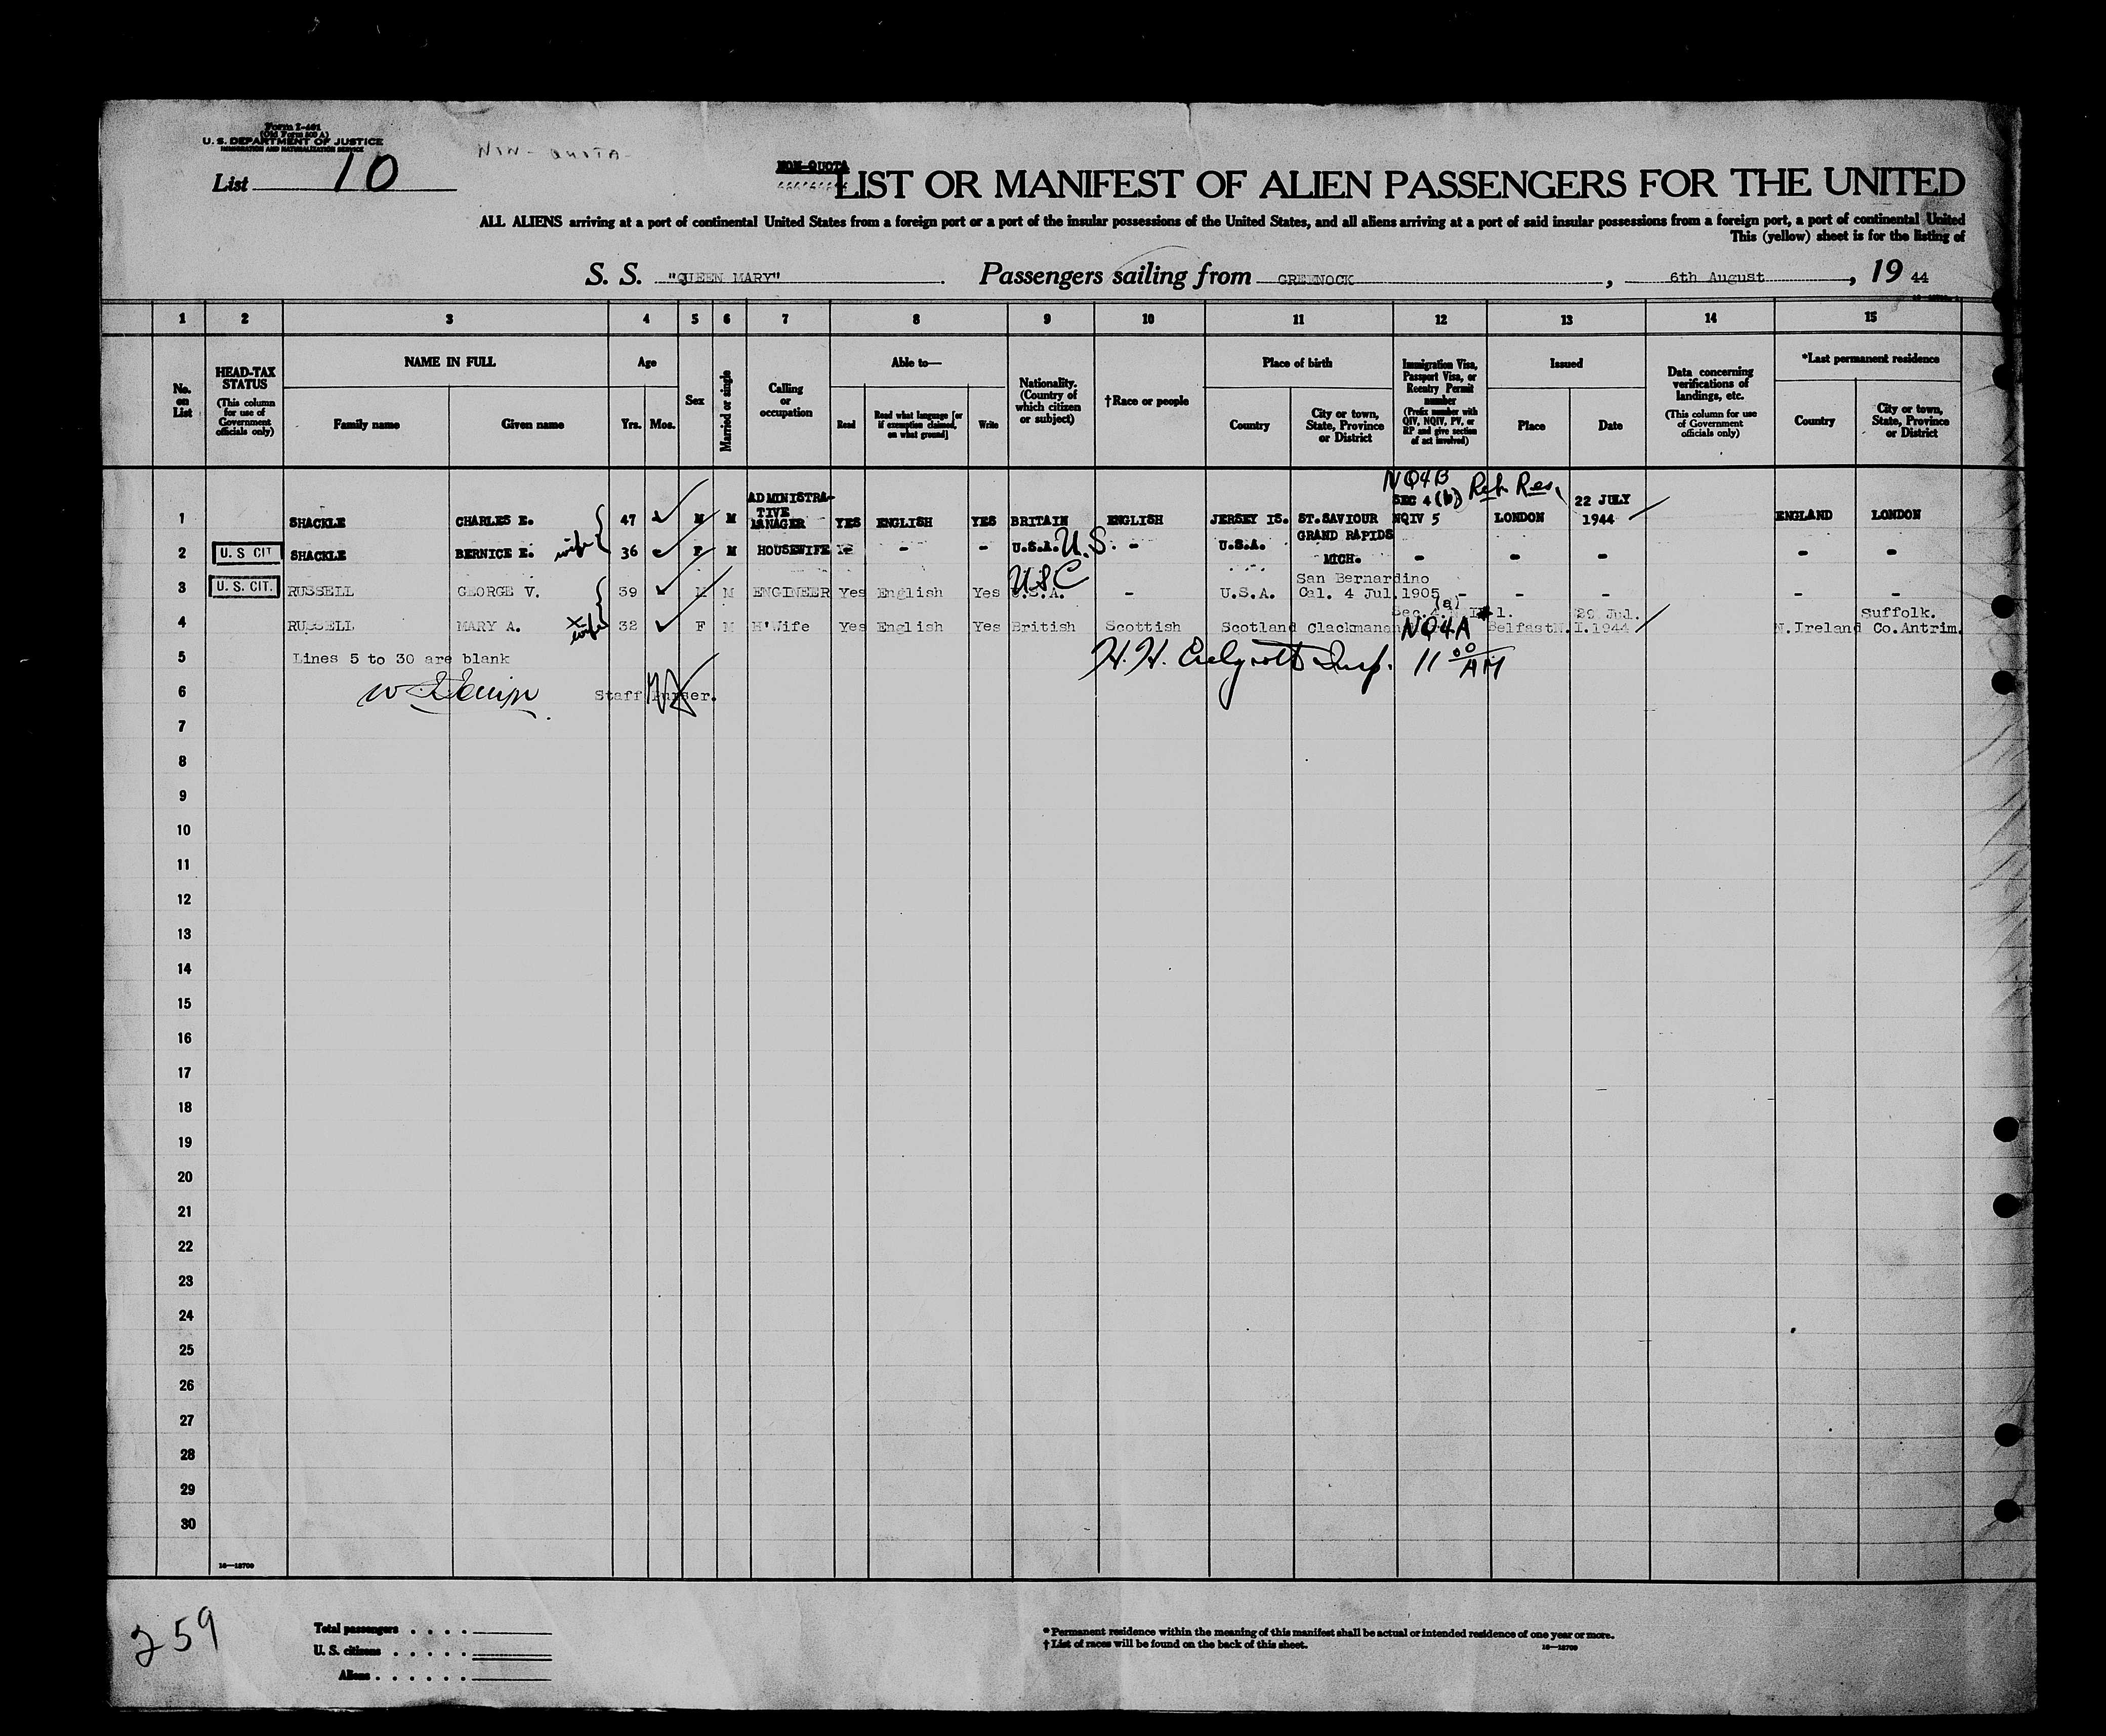 Form I-461
(Old Form 500 A)
U. S. DEPARTMENT OF JUSTICE
IMMIGRATION AND NATURALIZATION SERVICE
List 10
NON-QUOTA
LIST OR MANIFEST OF ALIEN PASSENGERS FOR THE UNITED
ALL ALIENS arriving at a port of continental United States from a foreign port or a port of the insular possessions of the United States, and all aliens arriving at a port of said insular possessions from a foreign port, a port of continental United
This (yellow) sheet is for the listing of
S. S. "QUEEN MARY" . Passengers sailing from GREENOCK , 6th August , 19 44
1 2 3 4 5 6 7 8 9 10 11 12 13 14 15
No. on List
HEAD-TAX STATUS (This column for use of Government officials only)
NAME IN FULL
Family name Given name
Age
Yrs. Mos.
Sex
Married or single
Calling or occupation
Able to—
Read Read what language [or if exemption claimed, on what ground] Write
Nationality. (Country of which citizen or subject)
†Race or people
Place of birth
Country City or town, State, Province or District
Immigration Visa, Passport Visa, or Reentry Permit number (Prefix number with QIV, NQIV, PV, or RP and give section of act involved)
Issued
Place Date
Data concerning verifications of landings, etc. (This column for use of Government officials only)
*Last permanent residence
Country City or town, State, Province or District
NQ4B
ADMINISTRA- SEC 4 (b) Ret. Res. 22 JULY
TIVE
1 SHACKLE CHARLES E. 47 M M MANAGER YES ENGLISH YES BRITAIN ENGLISH JERSEY IS. ST.SAVIOUR NQIV 5 LONDON 1944 ENGLAND LONDON
GRAND RAPIDS
2 U. S CIT SHACKLE BERNICE E. wife 36 F M HOUSEWIFE - - U.S.A. U.S. - U.S.A. MICH. - - - - -
San Bernardino
3 U. S. CIT. RUSSELL GEORGE V. 39 M M ENGINEER Yes English Yes U.S.A. USC - U.S.A. Cal. 4 Jul.1905 - - - - -
(a) 29 Jul. Suffolk.
4 RUSSELL MARY A. x wife 32 F M H'Wife Yes English Yes British Scottish Scotland Clackmanan NQ4A Belfast N.I. 1944 N.Ireland Co.Antrim.
5 Lines 5 to 30 are blank H. H. Insp. 11 00 AM
6 Staff Purser.
7
8
9
10
11
12
13
14
15
16
17
18
19
20
21
22
23
24
25
26
27
28
29
30
16—18709
259
Total passengers . . . .
U. S. citizens . . . . .
Aliens . . . . . .
* Permanent residence within the meaning of this manifest shall be actual or intended residence of one year or more.
† List of races will be found on the back of this sheet.
16—18709